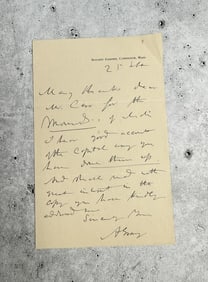 Botanic Garden, Cambridge, Mass.
25
Many thanks dear
Mr. for the
of which
I hear good accounts
of the Capital way you
have done them up.
And shall read with
great interest in the
copy you have kindly
Sincerely Yours
A Gray